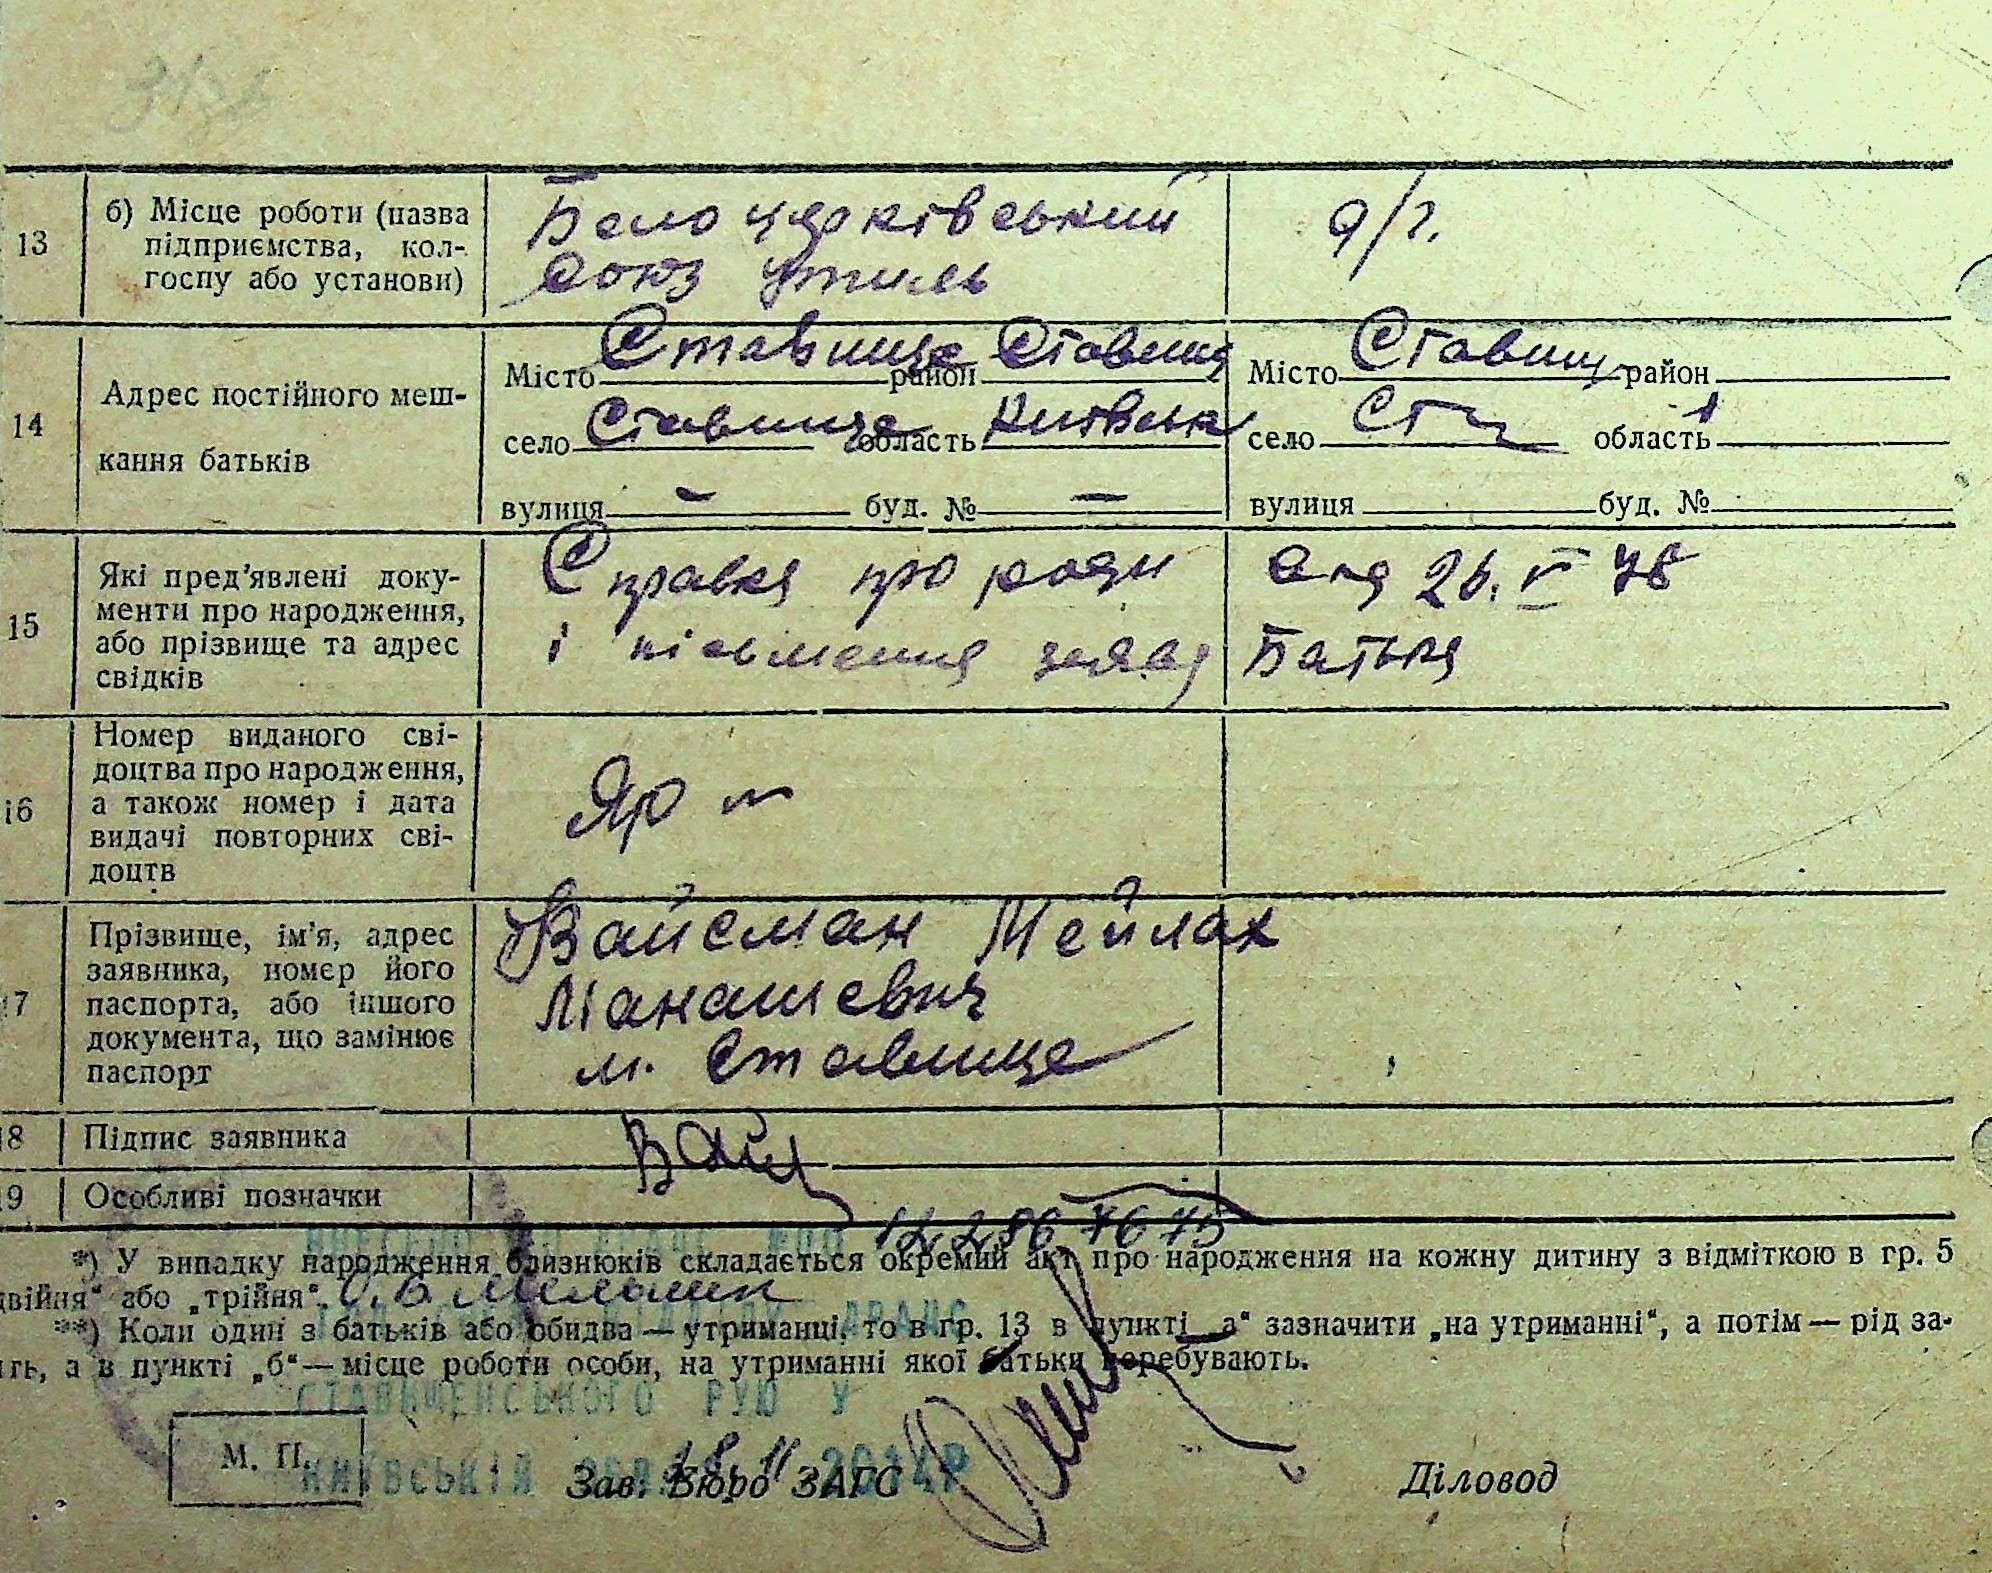 13 б) Місце роботи (назва
підприємства, кол-
госпу або установи)
Бело церківський
Союз утиль
д/г.
14 Адрес постійного меш-
кання батьків
Місто Ставище район Ставищ
село Ставище область Київськ
вулиця — буд. № —
Місто Ставищ район
село область
вулиця буд. №
15 Які пред'явлені доку-
менти про народження,
або прізвище та адрес
свідків
Справка про роди
і пісьмення заява
26. V
Батька
16 Номер виданого сві-
доцтва про народження,
а також номер і дата
видачі повторних сві-
доцтв
17 Прізвище, ім'я, адрес
заявника, номер його
паспорта, або іншого
документа, що замінює
паспорт
Вайсман Мейлах
Манашевич
м. Ставище
18 Підпис заявника
19 Особливі позначки
*) У випадку народження близнюків складається окремий акт про народження на кожну дитину з відміткою в гр. 5
двійня“ або „трійня“.
**) Коли один з батьків або обидва — утриманці, то в гр. 13 в пункті „а“ зазначити „на утриманні“, а потім — рід за-
ять, а в пункті „б“ — місце роботи особи, на утриманні якої батьки перебувають.
О.В. Мельник
СТАВИЩЕНСЬКОГО РУЮ У
КИЇВСЬКІЙ
М. П.
Зав. Бюро ЗАГС
Діловод